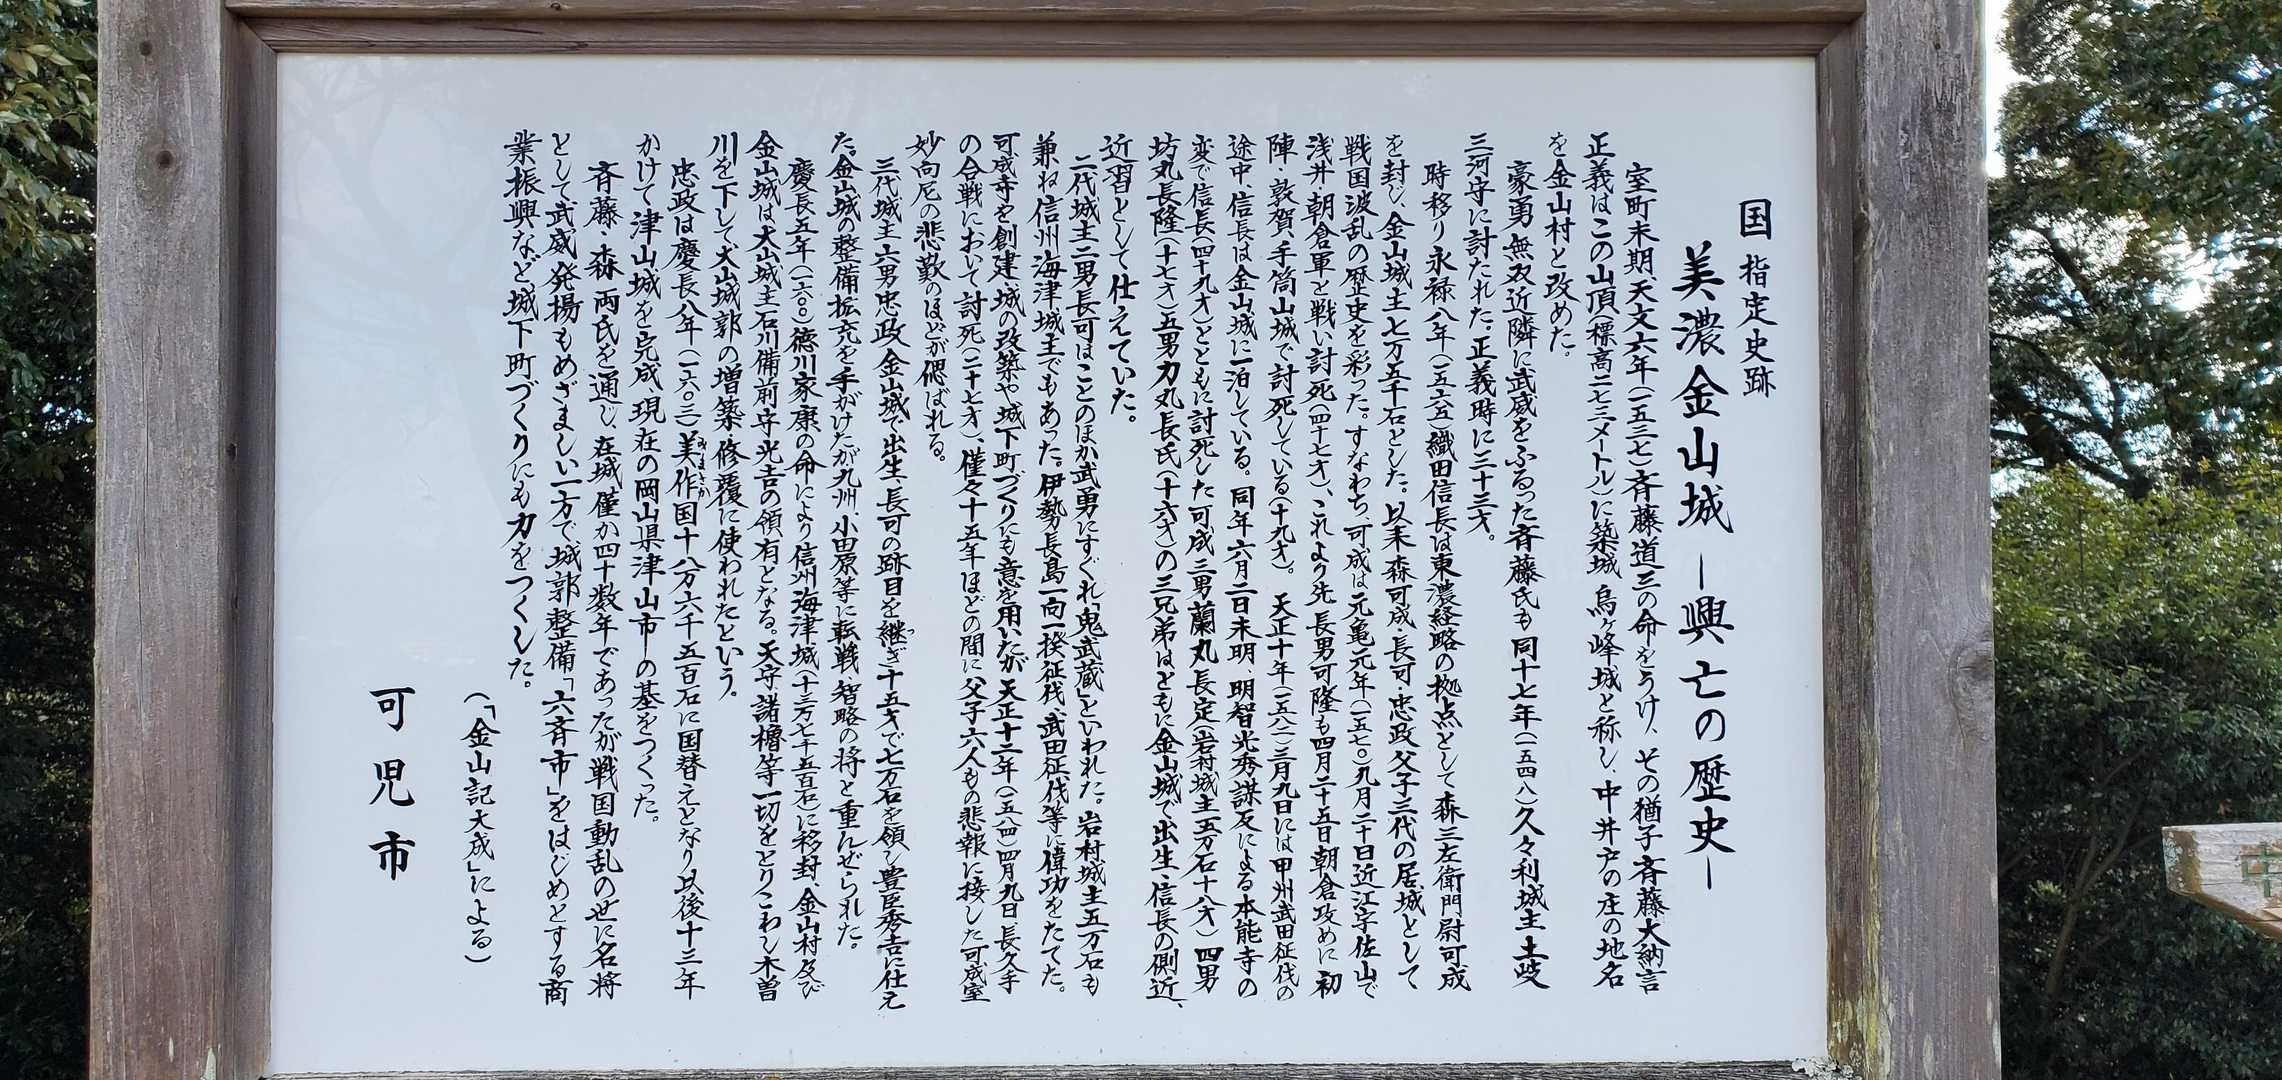 国指定史跡
美濃金山城 ―興亡の歴史―
室町末期、天文六年(一五三七)斉藤道三の命をうけ、その猶子斉藤大納言
正義はこの山頂(標高二七三メートル)に築城 烏ヶ峰城と称し、中井戸の庄の地名
を金山村と改めた。
豪勇無双近隣に武威をふるった斉藤氏も同十七年(一五四八)久々利城主土岐
三河守に討たれた。正義時に三十三才。
時移り永禄八年(一五六五)織田信長は東濃経略の拠点として森三左衛門尉可成
を封じ、金山城主七万五千石とした。以来森可成・長可・忠政父子三代の居城として
戦国波乱の歴史を彩った。すなわち、可成は元亀元年(一五七〇)九月二十日近江宇佐山で
浅井・朝倉軍と戦い討死(四十七才)、これより先長男可隆も四月二十五日朝倉攻めに初
陣・敦賀、手筒山城で討死している(十九才)。天正十年(一五八二)三月九日には甲州武田征伐の
途中、信長は金山城に一泊している。同年六月二日未明 明智光秀謀反による本能寺の
変で信長(四十九才)とともに討死した可成三男蘭丸長定(岩村城主五万石十八才)四男
坊丸長隆(十七才)五男力丸長氏(十六才)の三兄弟はともに金山城で出生、信長の側近、
近習として仕えていた。
二代城主二男長可はことのほか武勇にすぐれ「鬼武蔵」といわれた。岩村城主五万石も
兼ね信州海津城主でもあった。伊勢長島一向一揆征伐、武田征伐等に偉功をたてた。
可成寺を創建、城の改築や城下町づくりにも意を用いたが天正十二年(一五八四)四月九日、長久手
の合戦において討死(二十七才)、僅々十五年ほどの間に父子六人もの悲報に接した可成室
妙向尼の悲歎のほどが偲ばれる。
三代城主六男忠政 金山城で出生、長可の跡目を継ぎ十五才で七万石を領し豊臣秀吉に仕え
た。金山城の整備拡充を手がけたが九州、小田原等に転戦、智略の将と重んぜられた。
慶長五年(一六〇〇)徳川家康の命により信州海津城(十三万七千五百石)に移封、金山村及び
金山城は犬山城主石川備前守光吉の領有となる。天守、諸櫓等一切をとりこわし木曽
川を下して犬山城郭の増築・修覆に使われたという。
忠政は慶長八年(一六〇三)美作国十八万六千五百石に国替えとなり以後十三年
かけて津山城を完成 現在の岡山県津山市の基をつくった。
斉藤・森 両氏を通じ、在城僅か四十数年であったが戦国動乱の世に名将
として武威発揚もめざましい一方で城郭整備「六斉市」をはじめとする商
業振興など城下町づくりにも力をつくした。
(「金山記大成」による)
可児市